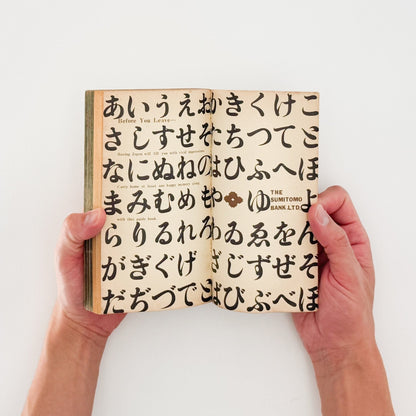 あいうえおかきくけこ
Before You Leave—
さしすせそたちつてと
Having Japan will fill you with vivid
なにぬねのはひふへほ
Carry home at least one happy memory
まみむめもや ゆ THE SUMITOMO BANK.LTD. よ
with this guide book
らりるれろわゐゑをん
がぎぐげござじずぜぞ
だぢづでどばびぶべぼ